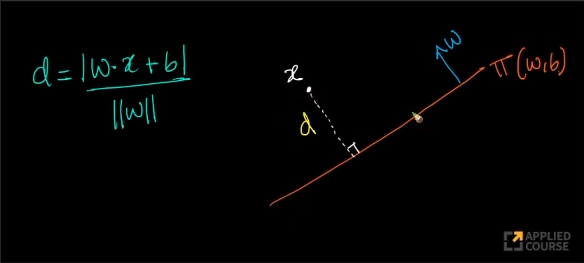 d = |w·x + b|
||w||
x
d
w
π(w,b)
APPLIED
COURSE